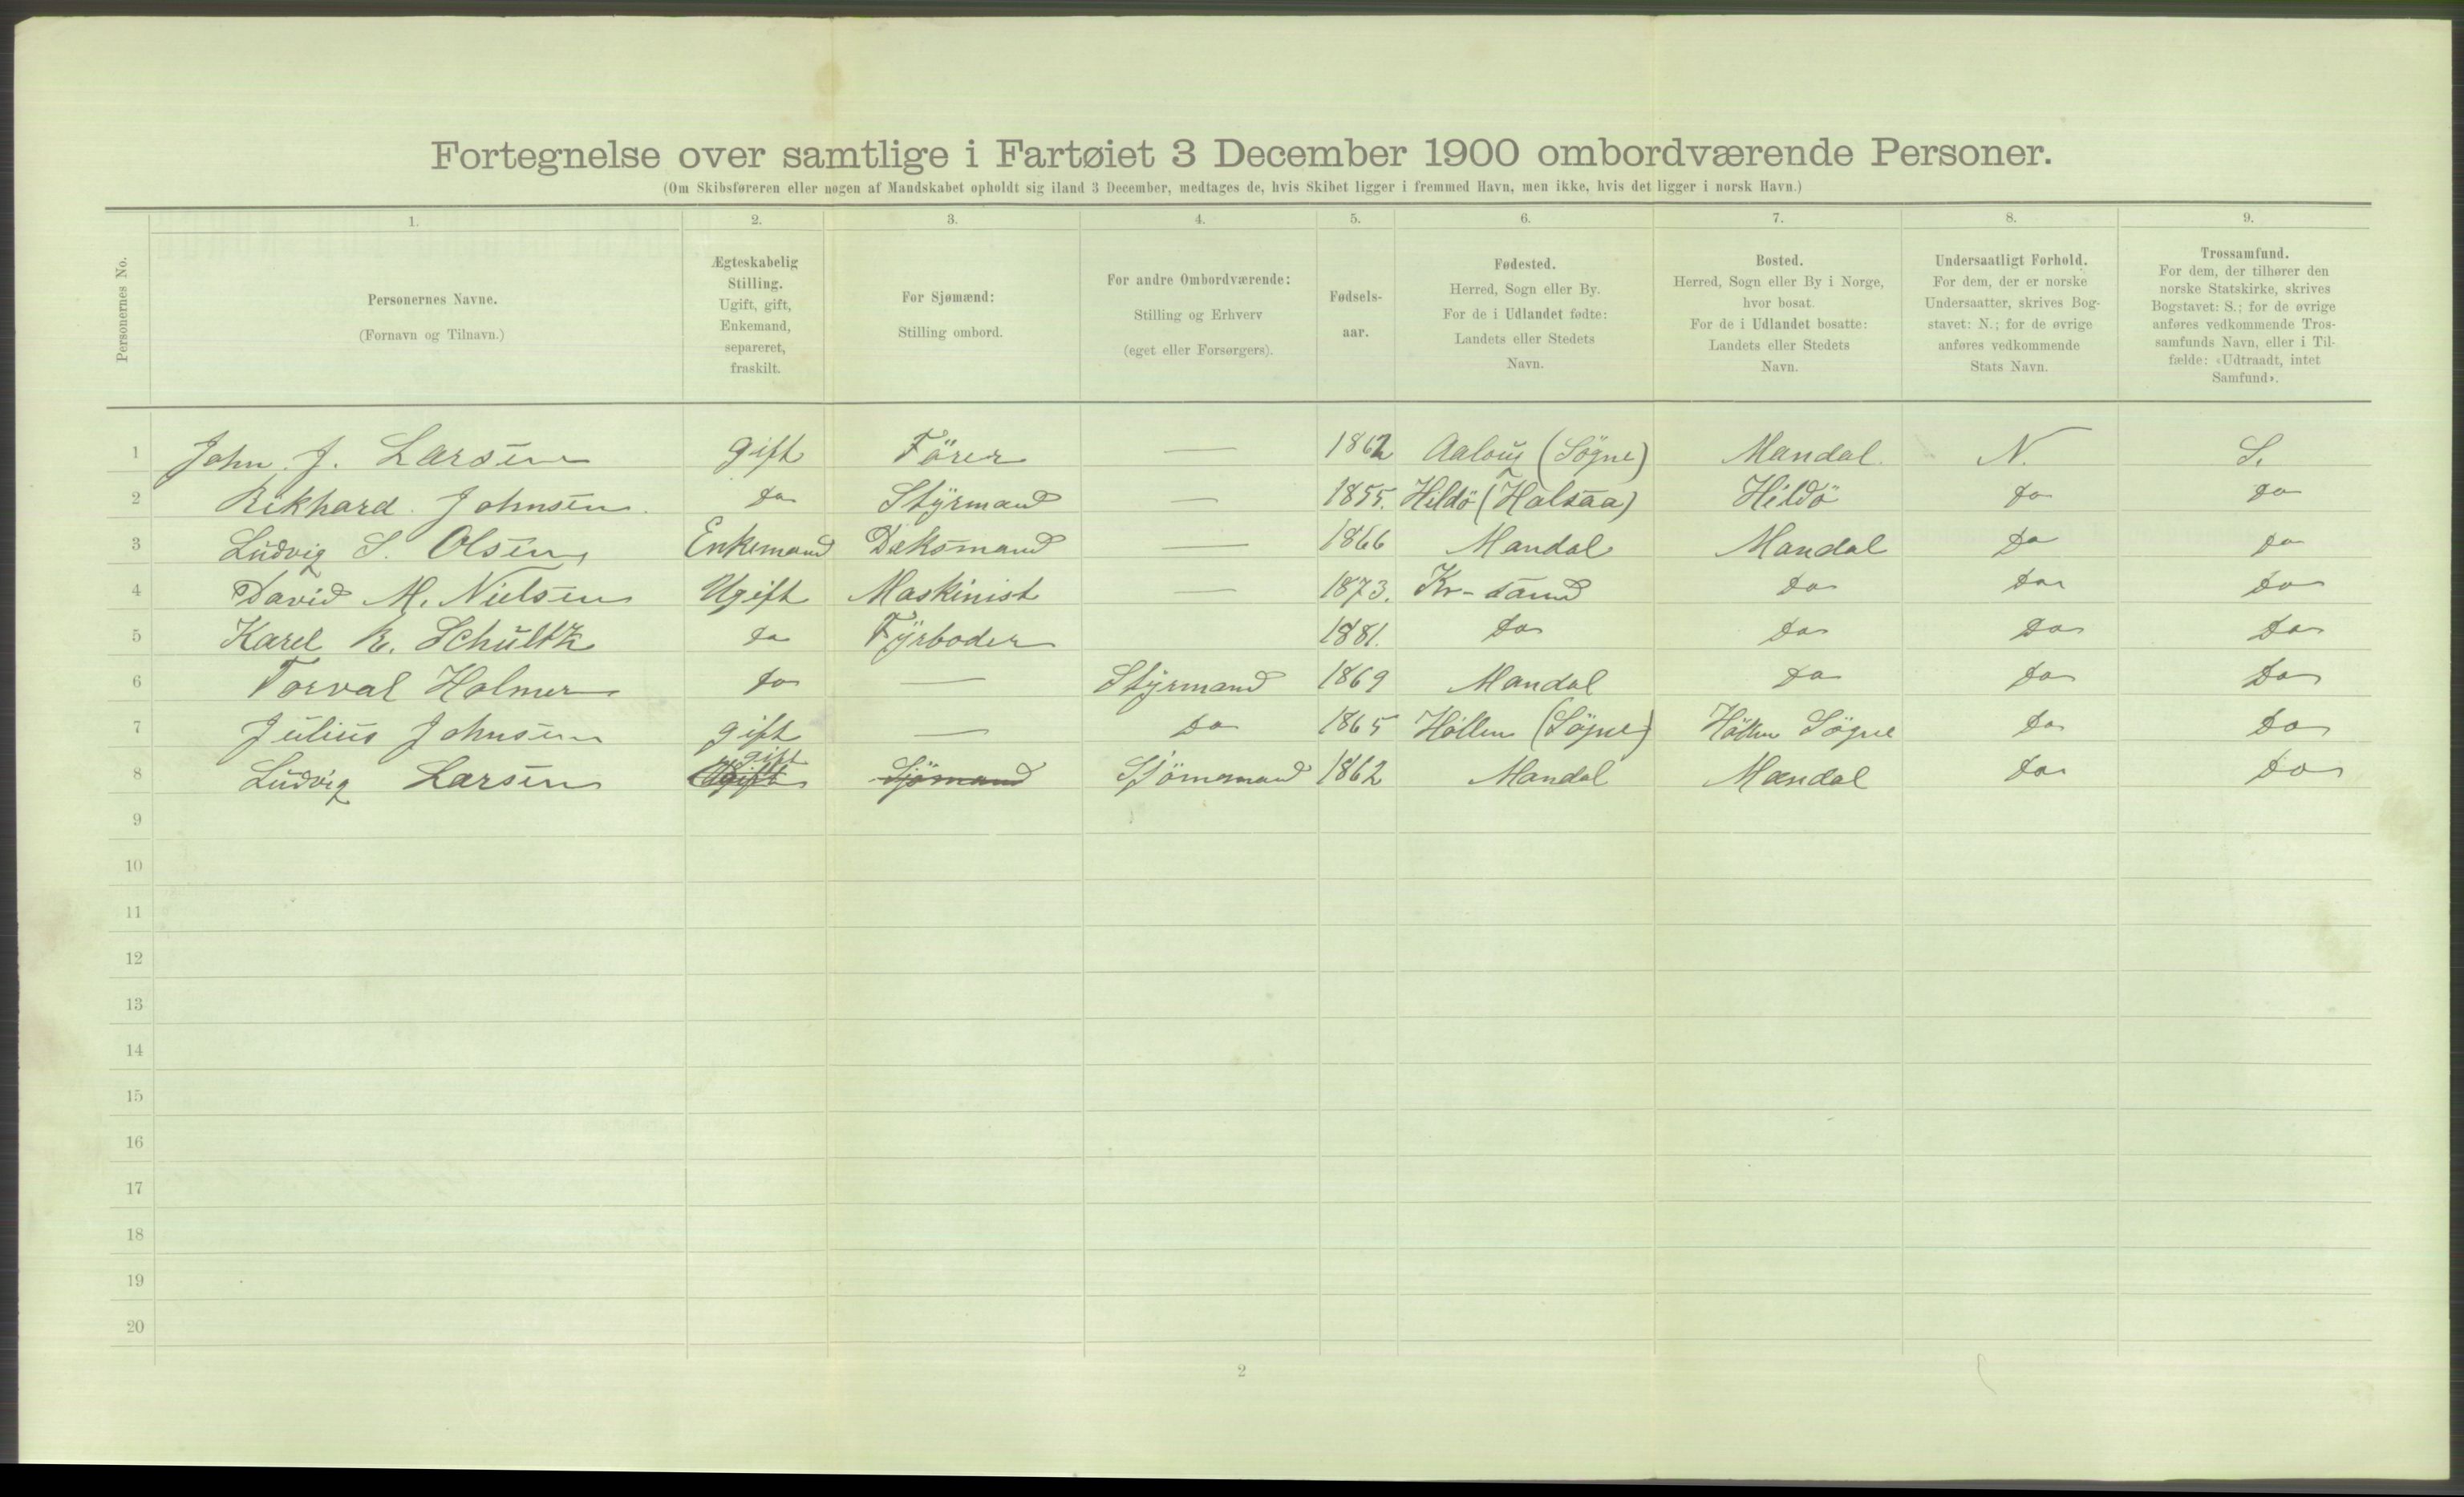 Fortegnelse over samtlige i Fartøiet 3 December 1900 ombordværende Personer.
(Om Skibsføreren eller nogen af Mandskabet opholdt sig iland 3 December, medtages de, hvis Skibet ligger i fremmed Havn, men ikke, hvis det ligger i norsk Havn.)
Personernes No.
1. 2. 3. 4. 5. 6. 7. 8. 9.
Personernes Navne.
(Fornavn og Tilnavn.)
Ægteskabelig
Stilling.
Ugift, gift,
Enkemand,
separeret,
fraskilt.
For Sjømænd:
Stilling ombord.
For andre Ombordværende:
Stilling og Erhverv
(eget eller Forsørgers).
Fødsels-
aar.
Fødested.
Herred, Sogn eller By.
For de i Udlandet fødte:
Landets eller Stedets
Navn.
Bosted.
Herred, Sogn eller By i Norge,
hvor bosat.
For de i Udlandet bosatte:
Landets eller Stedets
Navn.
Undersaatligt Forhold.
For dem, der er norske
Undersaatter, skrives Bog-
stavet: N.; for de øvrige
anføres vedkommende
Stats Navn.
Trossamfund.
For dem, der tilhører den
norske Statskirke, skrives
Bogstavet: S.; for de øvrige
anføres vedkommende Tros-
samfunds Navn, eller i Til-
fælde: «Udtraadt, intet
Samfund».
1 John J. Larsen gift Förer — 1862 (Sögne) Mandal N. S.
2 Rikhard Johnsen do Styrmand — 1855. Hildö (Halsaa) Hildö do do
3 Ludvig S. Olsen, Enkemand Deksmand — 1866 Mandal Mandal Do do
4 David M. Nielsen Ugift Maskinist — 1873. Kr-sand do do do
5 Karel R. Schultz do Fyrboder 1881. do do do do
6 Torval Holmer do — Styrmand 1869 Mandal Do do Do
7 Julius Johnsen gift — Do 1865 Höllen (Sögne) Höllen Sögne do Do
8 Ludvig Larsen Ugift gift Sjömand Sjömmand 1862 Mandal Mandal do Do
9
10
11
12
13
14
15
16
17
18
19
20
2